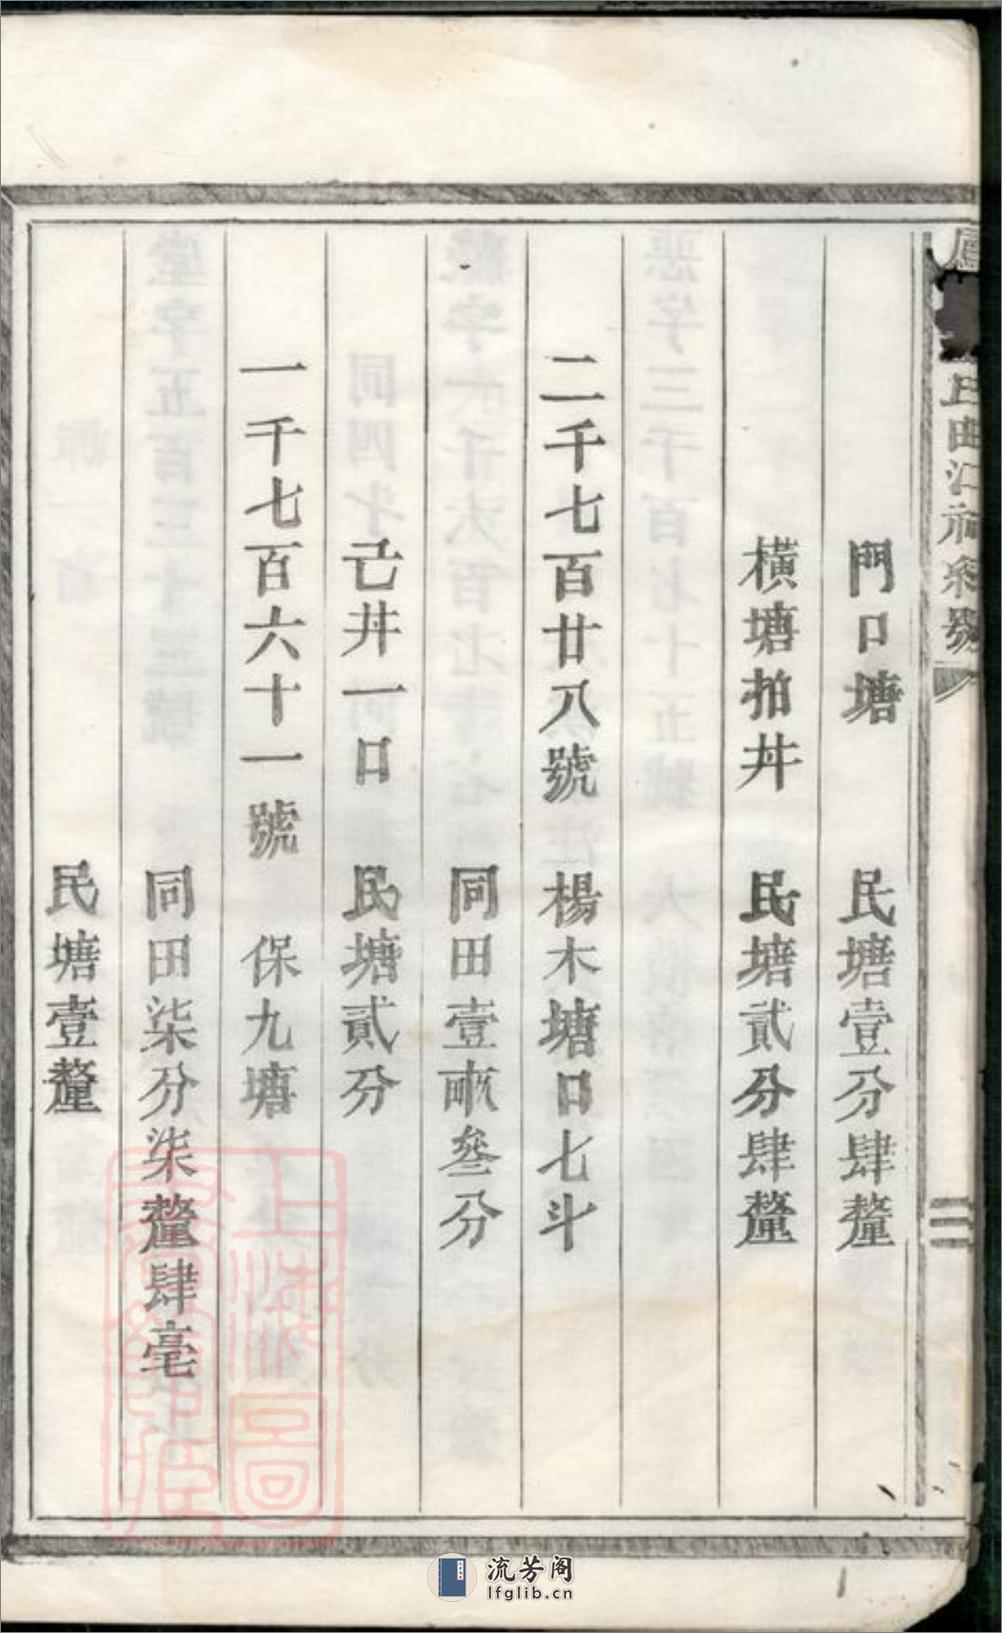 氏曲江祠
三
門口塘 民塘壹分肆釐
橫塘拍丼 民塘貳分肆釐
二千七百廿八號 楊木塘口七斗
同田壹畝叄分
亡丼一口 民塘貳分
一千七百六十一號 保九塘
同田柒分柒釐肆毫
民塘壹釐
上海圖書館藏
流芳阁
lfglib.cn